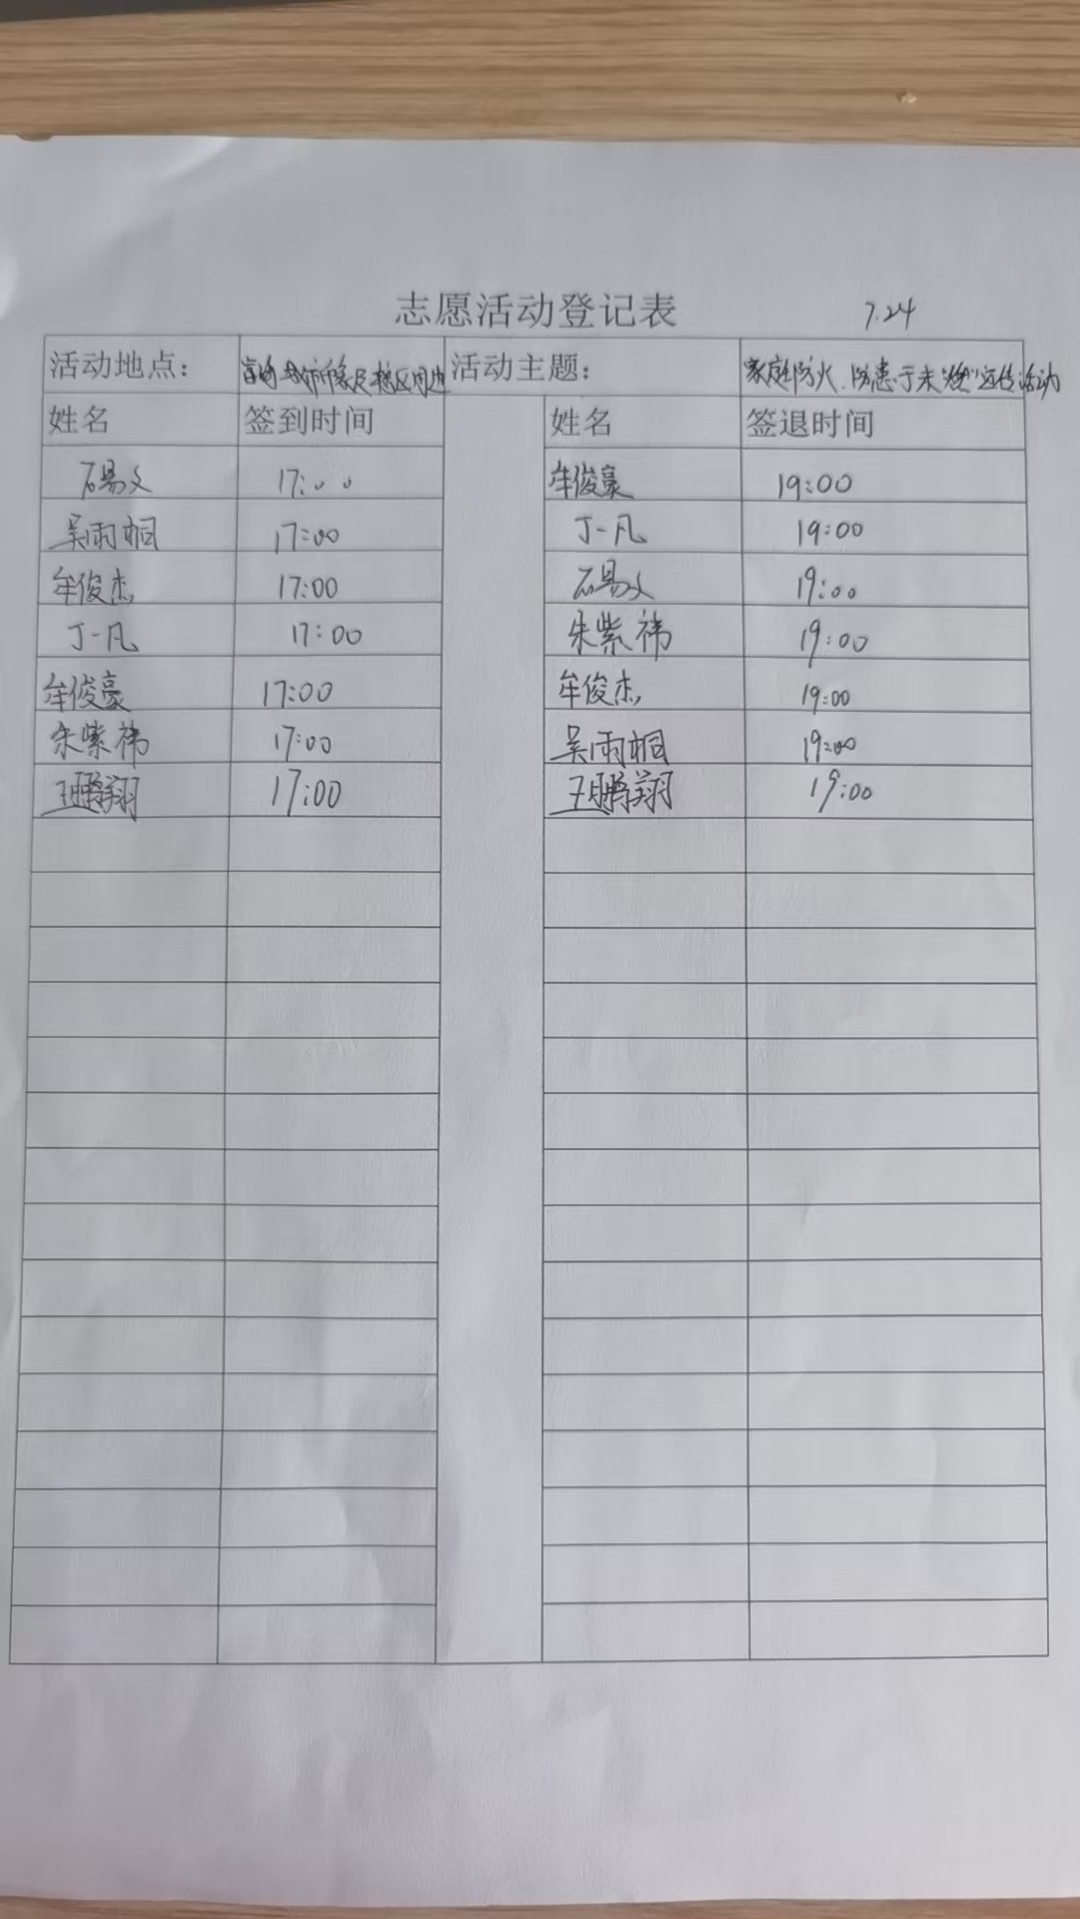 志愿活动登记表 7.24
活动地点： 周边 活动主题： 家庭防火、防患于未"燃"宣传活动
姓名 签到时间 姓名 签退时间
石易文 17:00 牟俊豪 19:00
吴雨桐 17:00 丁一凡 19:00
牟俊杰 17:00 石易文 19:00
丁一凡 17:00 朱紫祎 19:00
牟俊豪 17:00 牟俊杰 19:00
朱紫祎 17:00 吴雨桐 19:00
王鹏翔 17:00 王鹏翔 19:00